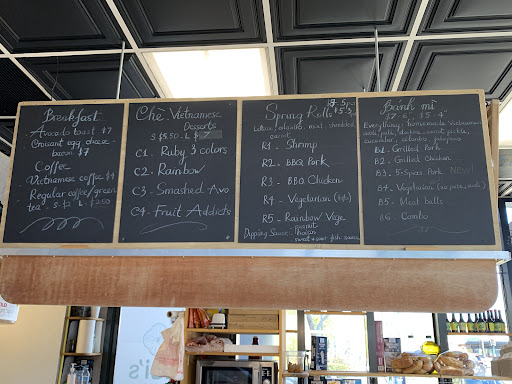 Breakfast
- Avocado toast $7
- Croisant egg cheese
bacon $7
Coffee
- Vietnamese coffee $4
- Regular coffee/green
tea
Chè Vietnamese
Desserts
S $5.50 - L $7
C1 - Ruby 3 colors
C2 - Rainbow
C3 - Smashed Avo
C4 - Fruit Addicts
Spring Rolls
R1 - Shrimp
R2 - BBQ Pork
R3 - BBQ Chicken
R4 - Vegetarian
R5 - Rainbow Vege
Dipping Sauce: peanut
hoisin
sweet + sour fish sauce
Bánh mì
Everything: homemade Vietnamese
cucumber, cilantro, jalapeno
B1 - Grilled Pork
B2 - Grilled Chicken
B3 - 5-Spices Pork NEW!
B4 - Vegetarian
B5 - Meat balls
B6 - Combo